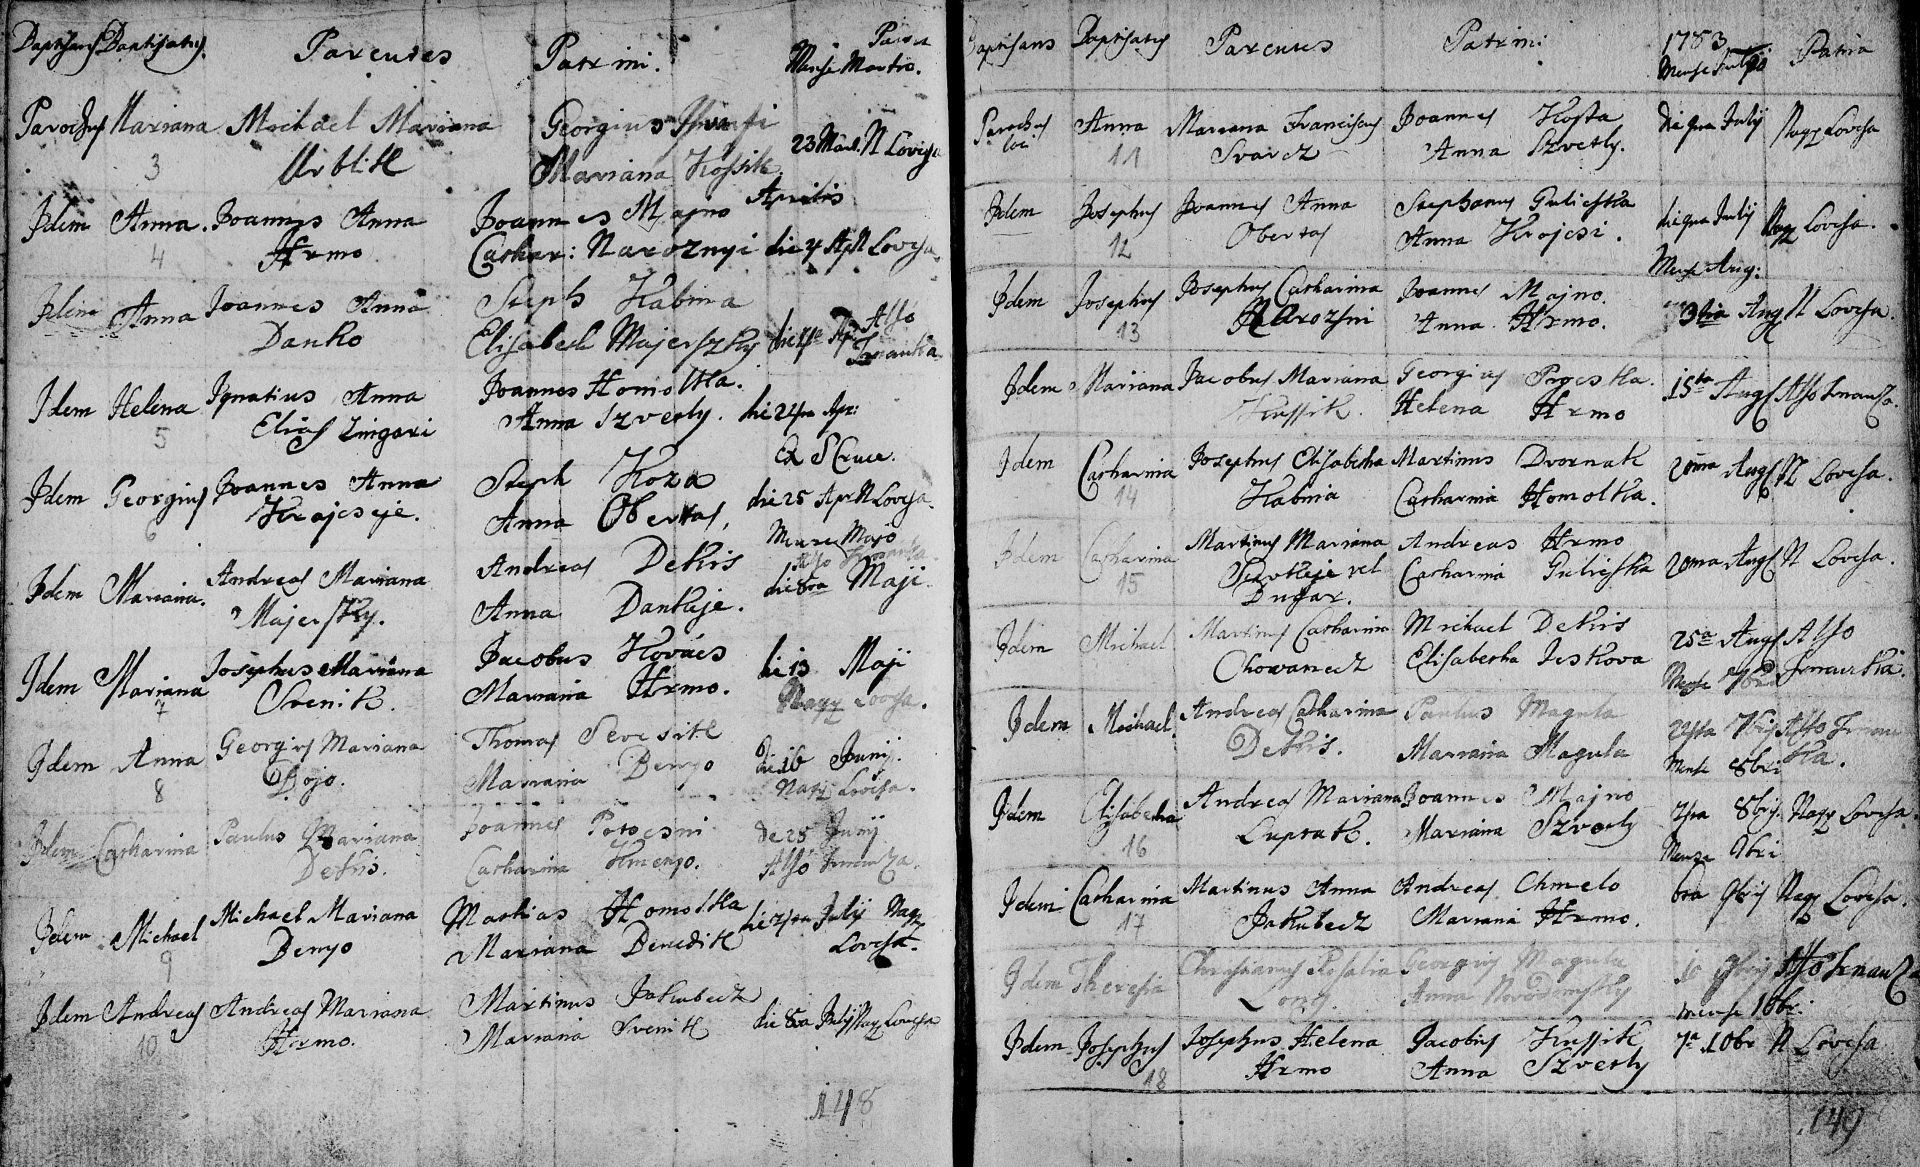 Baptisans Baptisatus. Parentes Patrini. Mense Martio.
Parochus Mariana Michael Mariana Georgius
3 Urblik Mariana Kossik 23 Mart. N Lovcsa
Aprilis
Idem Anna. Joannes Anna Joannes Majno
4 Hrmo Cathar: Naroznyi die 4 Apr N Lovcsa.
Idem Anna Joannes Anna Steph Habina
Danko Elisabeth Majerszky Alsó
Idem Helena Ignatius Anna Joannes Homolka.
5 Elias Zingari Anna Szverly. die Apr:
Ex S Cruce.
Idem Georgius Joannes Anna Steph Koza
6 Krajcseje. Anna Obertas, die 25 Apr N Lovcsa.
Mense Majo
Idem Mariana. Andreas Mariana Andreas Dekis
Majerszky. Anna Dankeje. die 8va Maji.
Idem Mariana Josephus Mariana Jacobus Kovács
7 Svenik. Mariana Hrmo. die 13 Maji
Nagy Lovcsa.
Idem Anna Georgius Mariana Thomas
8 Bojo. Mariana Benyo die 16 Junij.
Nagy Lovcsa.
Idem Catharina Paulus Mariana Joannes Potocsni
Dekis. Catharina Kmenyo. de 25 Junij
Alsó
Idem Michael Michael Mariana Mathias Homolka
9 Benyo Mariana Benedik July Nagy
Lovcsa.
Idem Andreas Andreas Mariana Martinus Jakubecz
10 Hrmo. Mariana Svenik die 8va July Nagy Lovcsa
148
Baptisans Baptisatus Parentes Patrini 1783 Patria
Mense
Parochus Anna Mariana Franciscus Joannes Kosta
loci 11 Svarcz Anna Szverly. July Nagy Lovcsa
Idem Josephus Joannes Anna Stephanus Gulieska
12 Obertas Anna Krajcsi. July Nagy Lovcsa.
Mense Aug:
Idem Josephus Josephus Catharina Joannes Majno.
13 Narozni Anna Hrmo. 3tia Aug N Lovcsa.
Idem Mariana Jacobus Mariana Georgius
Kussik. Helena Hrmo 15ta Aug Alsó
Idem Catharina Josephus Elisabetha Martinus Dvornak
14 Habina Catharina Homolka. 20ma Aug N Lovcsa.
Idem Catharina Martinus Mariana Andreas Hrmo
15 vel Catharina Gulieska 20ma Aug N Lovcsa.
Dugar.
Idem Michael Martinus Catharina Michael Dekis
Chowanecz Elisabetha Jeskova 25a Aug Alsó
Mense 7bri
Idem Michael Andreas Catharina Paulus Magula
Dekis. Mariana Magula 7bris Alsó
Mense 8bri
Idem Elisabetha Andreas Mariana Joannes Majno
16 Luptak. Mariana Szverly 8bris. Nagy Lovcsa.
Mense 9bri
Idem Catharina Martinus Anna Andreas Chmelo
17 Jakubecz Mariana Hrmo. 6ta 9bris Nagy Lovcsa.
Idem Theresia Christianus Rosalia Georgius Magula
Long. Anna 10 9bris Alsó
Mense 10bri.
Idem Josephus Josephus Helena Jacobus Kussik
18 Hrmo Anna Szverly 7a 10br N Lovcsa
149